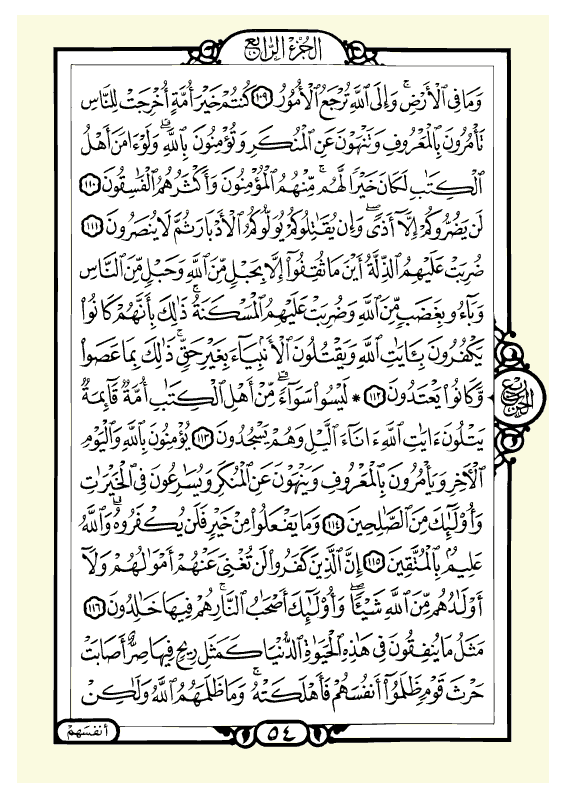 الجزء الرابع
وَمَا فِى ٱلْأَرْضِ ۚ وَإِلَى ٱللَّهِ تُرْجَعُ ٱلْأُمُورُ ﴿١٠٩﴾ كُنتُمْ خَيْرَ أُمَّةٍ أُخْرِجَتْ لِلنَّاسِ
تَأْمُرُونَ بِٱلْمَعْرُوفِ وَتَنْهَوْنَ عَنِ ٱلْمُنكَرِ وَتُؤْمِنُونَ بِٱللَّهِ ۗ وَلَوْ ءَامَنَ أَهْلُ
ٱلْكِتَٰبِ لَكَانَ خَيْرًا لَّهُم ۚ مِّنْهُمُ ٱلْمُؤْمِنُونَ وَأَكْثَرُهُمُ ٱلْفَٰسِقُونَ ﴿١١٠﴾
لَن يَضُرُّوكُمْ إِلَّآ أَذًى ۖ وَإِن يُقَٰتِلُوكُمْ يُوَلُّوكُمُ ٱلْأَدْبَارَ ثُمَّ لَا يُنصَرُونَ ﴿١١١﴾
ضُرِبَتْ عَلَيْهِمُ ٱلذِّلَّةُ أَيْنَ مَا ثُقِفُوٓا۟ إِلَّا بِحَبْلٍ مِّنَ ٱللَّهِ وَحَبْلٍ مِّنَ ٱلنَّاسِ
وَبَآءُو بِغَضَبٍ مِّنَ ٱللَّهِ وَضُرِبَتْ عَلَيْهِمُ ٱلْمَسْكَنَةُ ۚ ذَٰلِكَ بِأَنَّهُمْ كَانُوا۟
يَكْفُرُونَ بِـَٔايَٰتِ ٱللَّهِ وَيَقْتُلُونَ ٱلْأَنۢبِيَآءَ بِغَيْرِ حَقٍّ ۚ ذَٰلِكَ بِمَا عَصَوا۟
وَّكَانُوا۟ يَعْتَدُونَ ﴿١١٢﴾ * لَيْسُوا۟ سَوَآءً ۗ مِّنْ أَهْلِ ٱلْكِتَٰبِ أُمَّةٌ قَآئِمَةٌ
يَتْلُونَ ءَايَٰتِ ٱللَّهِ ءَانَآءَ ٱلَّيْلِ وَهُمْ يَسْجُدُونَ ﴿١١٣﴾ يُؤْمِنُونَ بِٱللَّهِ وَٱلْيَوْمِ
ٱلْأَخِرِ وَيَأْمُرُونَ بِٱلْمَعْرُوفِ وَيَنْهَوْنَ عَنِ ٱلْمُنكَرِ وَيُسَٰرِعُونَ فِى ٱلْخَيْرَٰتِ
وَأُو۟لَٰٓئِكَ مِنَ ٱلصَّٰلِحِينَ ﴿١١٤﴾ وَمَا يَفْعَلُوا۟ مِنْ خَيْرٍ فَلَن يُكْفَرُوهُ ۗ وَٱللَّهُ
عَلِيمٌۢ بِٱلْمُتَّقِينَ ﴿١١٥﴾ إِنَّ ٱلَّذِينَ كَفَرُوا۟ لَن تُغْنِىَ عَنْهُمْ أَمْوَٰلُهُمْ وَلَآ
أَوْلَٰدُهُم مِّنَ ٱللَّهِ شَيْـًٔا ۖ وَأُو۟لَٰٓئِكَ أَصْحَٰبُ ٱلنَّارِ ۚ هُمْ فِيهَا خَٰلِدُونَ ﴿١١٦﴾
مَثَلُ مَا يُنفِقُونَ فِى هَٰذِهِ ٱلْحَيَوٰةِ ٱلدُّنْيَا كَمَثَلِ رِيحٍ فِيهَا صِرٌّ أَصَابَتْ
حَرْثَ قَوْمٍ ظَلَمُوٓا۟ أَنفُسَهُمْ فَأَهْلَكَتْهُ ۚ وَمَا ظَلَمَهُمُ ٱللَّهُ وَلَٰكِنْ
أنفسهم
٥٤